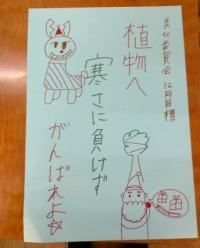 美化委員会 12月目標
植物へ
寒さに負けず
がんばれよ☆